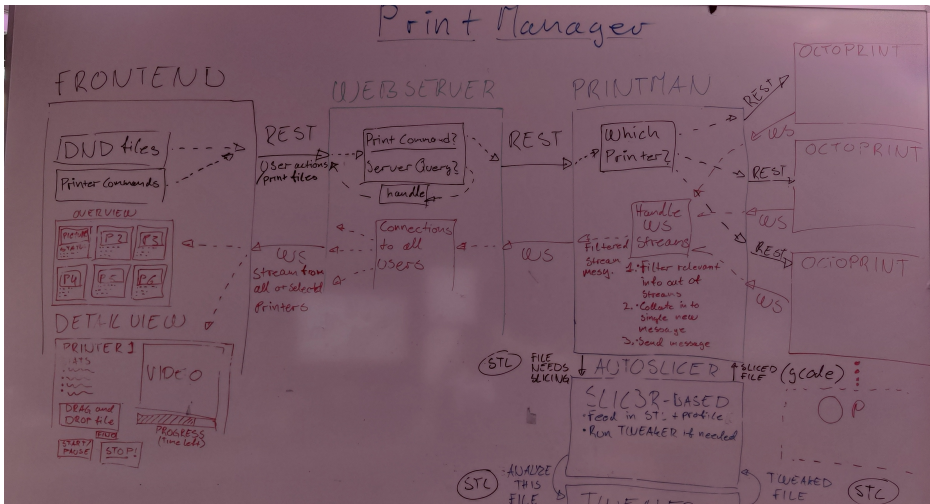 Print Manager
FRONTEND
DND files
Printer Commands
OVERVIEW
P2
P3
P4
P5
P6
DETAIL VIEW
PRINTER 1
VIDEO
DRAG and
DROP file
START/
PAUSE
STOP!
PROGRESS
(time left)
REST
User actions
print files
WS
Stream from
all or selected
Printers
WEBSERVER
Print Command?
Server Query?
handle
Connections
to all
Users
REST
WS
PRINTMAN
Which
Printer?
Handle
WS
Streams
Filtered
Stream
mesg.
1. Filter relevant
info out of
Streams
2. Collate into
single new
message
3. Send message
REST
WS
REST
WS
REST
WS
OCTOPRINT
OCTOPRINT
OCTOPRINT
STL
FILE
NEEDS
SLICING
AUTOSLICER
SLICED
FILE
(gcode)
SLIC3R-BASED
• Feed in STL + profile
• Run TWEAKER if needed
STL
ANALIZE
THIS
FILE
TWEAKED
FILE
STL
TWEAKER
P